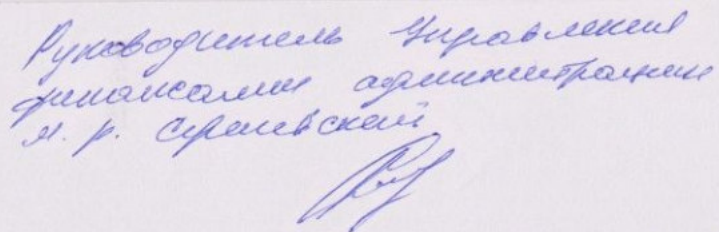 Руководитель Управления
финансами администрации
м. р. Сергиевский